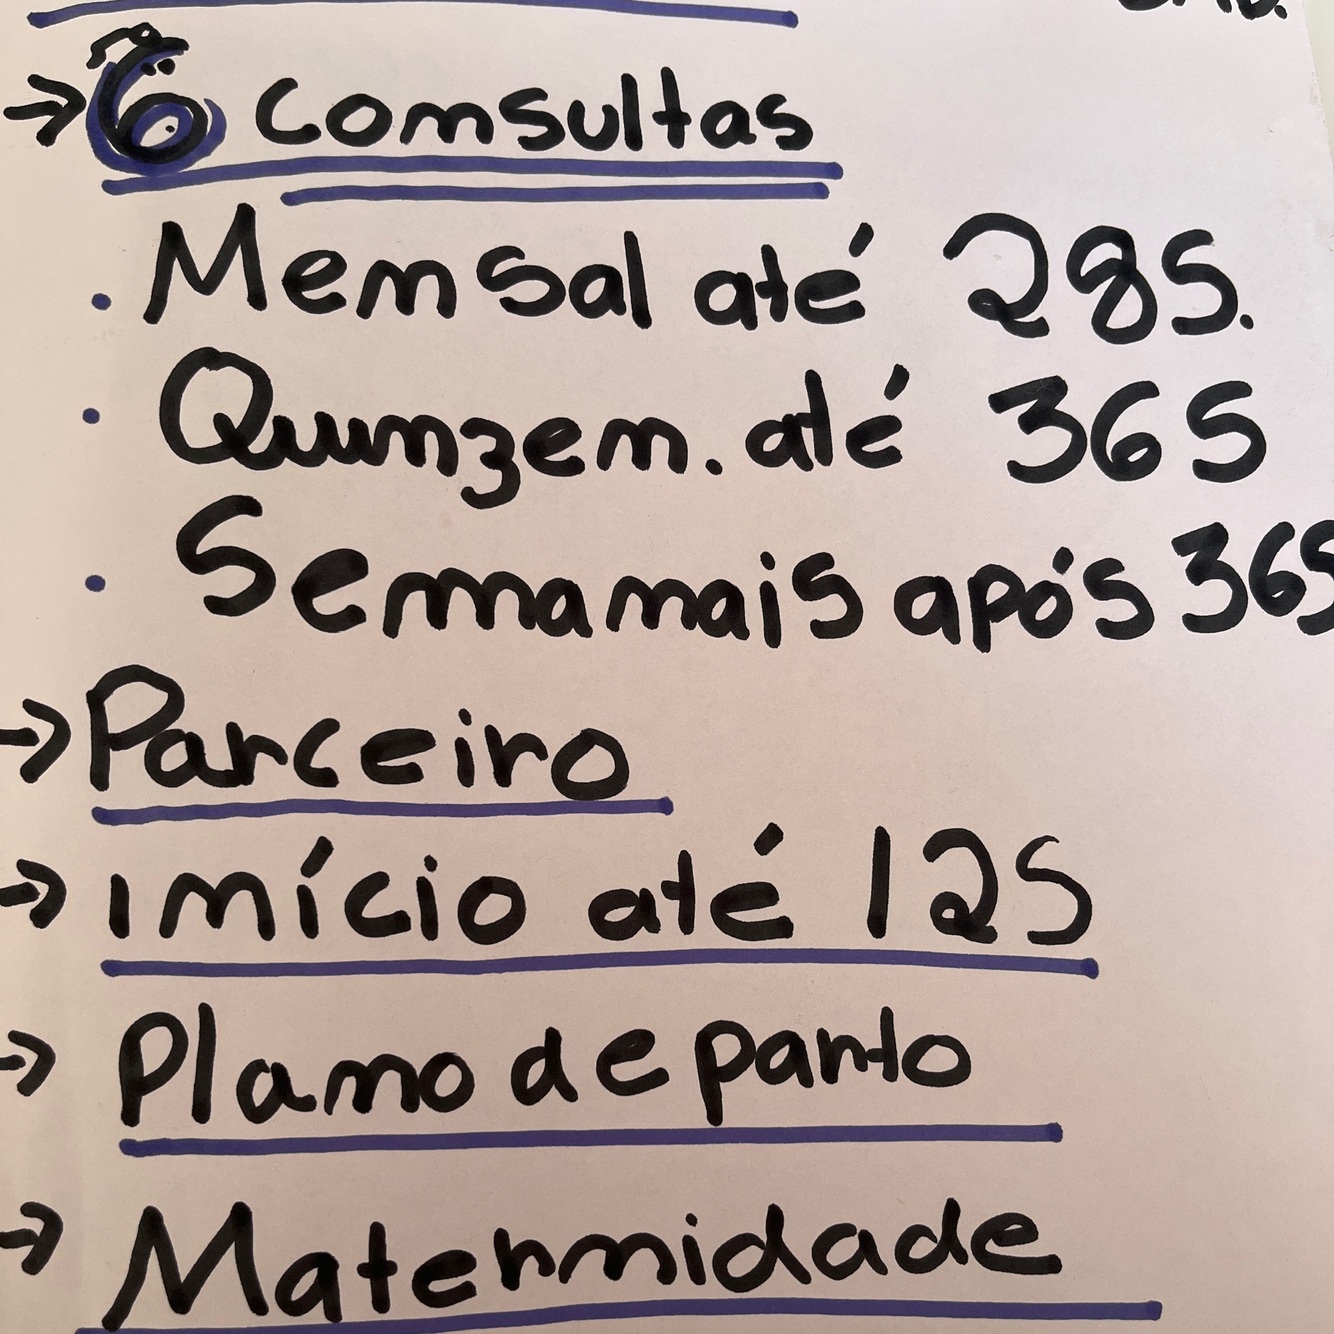 → 6 consultas
• Mensal até 28S.
• Quinzen. até 36S
• Semanais após 36S
→ Parceiro
→ início até 12S
→ Plano de parto
→ Maternidade